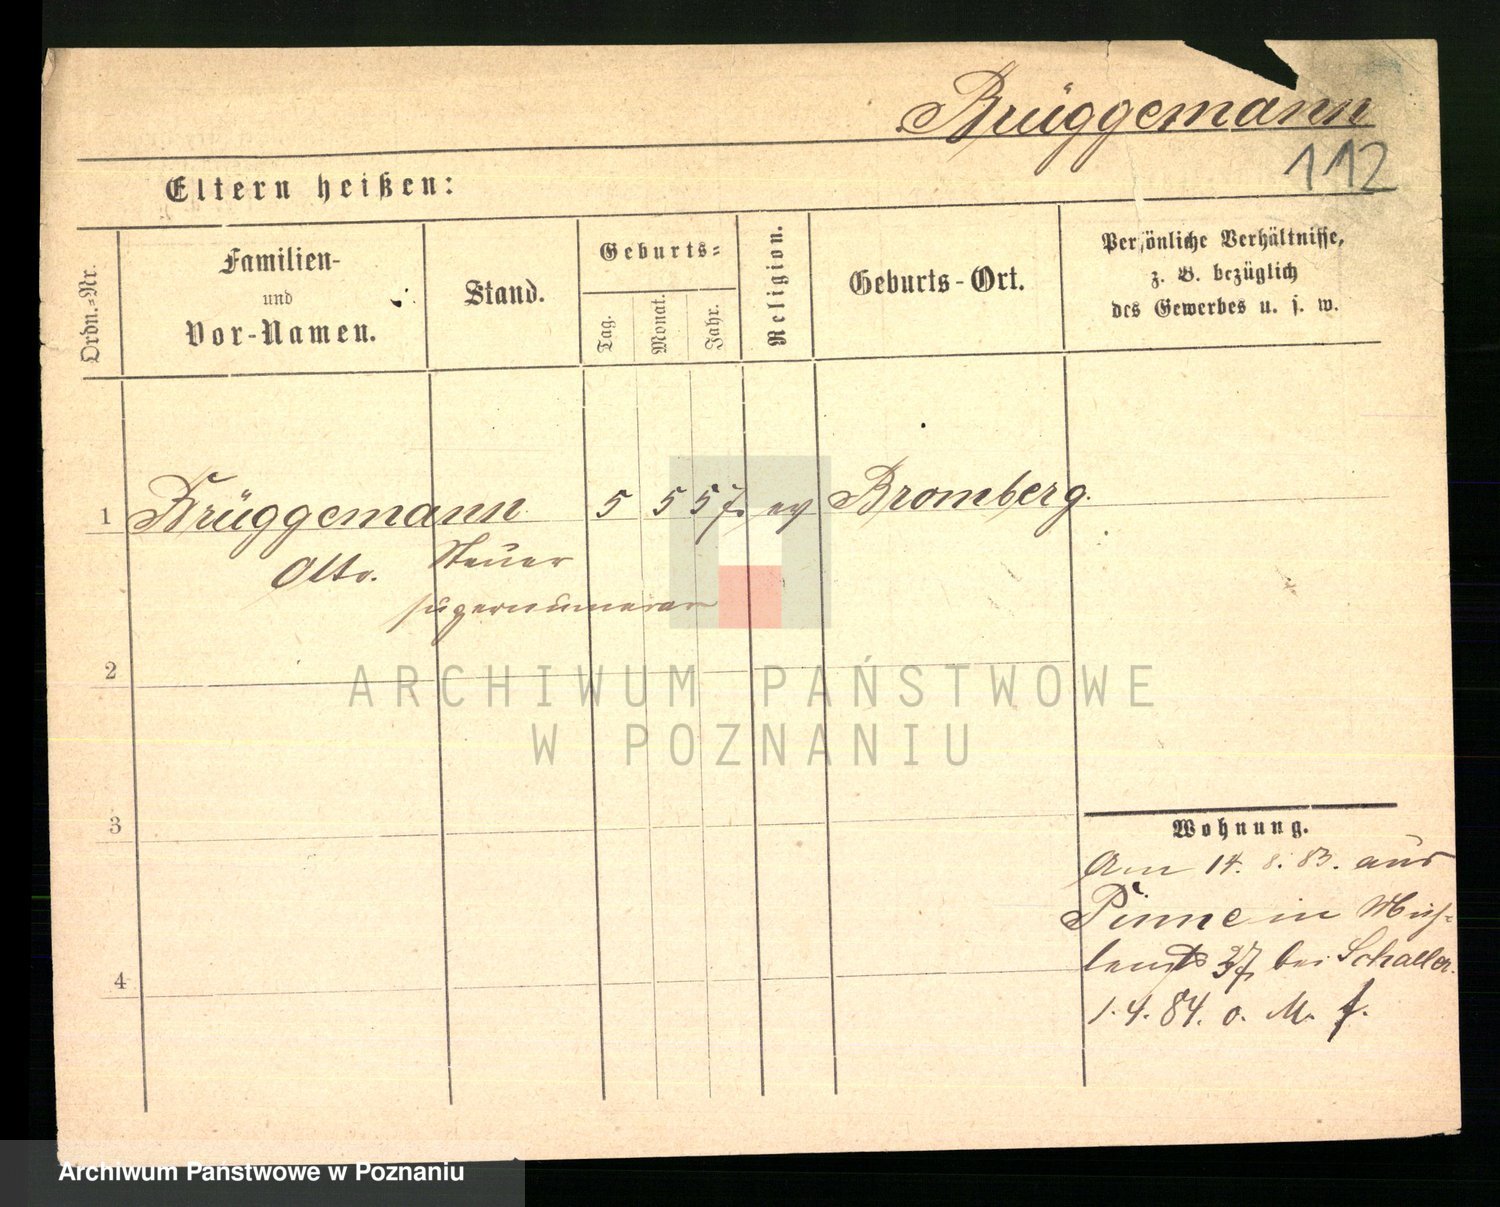 Brüggemann
112
Eltern heißen:
Ordn.-Nr.
Familien-
und
Vor-Namen.
Stand.
Geburts-
Tag.
Monat.
Jahr.
Religion.
Geburts-Ort.
Persönliche Verhältnisse,
z. B. bezüglich
des Gewerbes u. s. w.
1 Brüggemann 5 5 57. ev Bromberg.
Otto. Steuer
supernumerar
2
ARCHIWUM PAŃSTWOWE
W POZNANIU
3
Wohnung.
Am 14. 8. 83. aus
Pinne in
27 bei Schaller.
4
1. 4. 84. o. M. f.
Archiwum Państwowe w Poznaniu